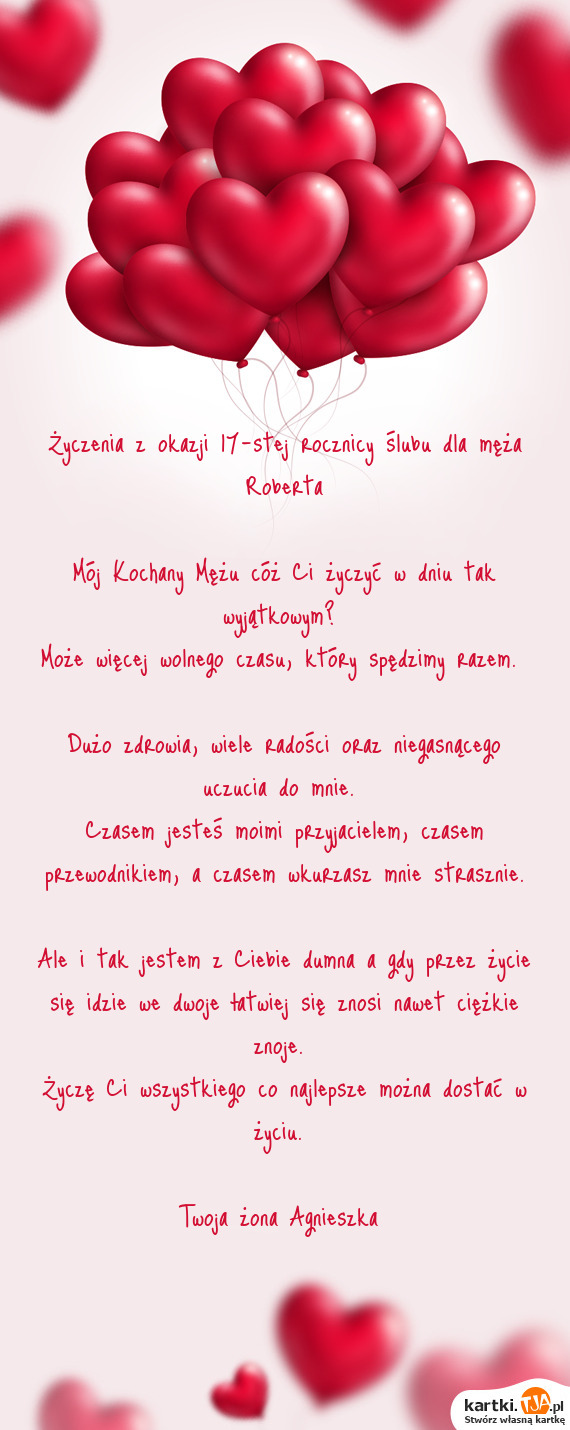 Życzenia z okazji 17-stej rocznicy ślubu dla męża
Roberta
Mój Kochany Mężu cóż Ci życzyć w dniu tak
wyjątkowym?
Może więcej wolnego czasu, który spędzimy razem.
Dużo zdrowia, wiele radości oraz niegasnącego
uczucia do mnie.
Czasem jesteś moimi przyjacielem, czasem
przewodnikiem, a czasem wkurzasz mnie strasznie.
Ale i tak jestem z Ciebie dumna a gdy przez życie
się idzie we dwoje łatwiej się znosi nawet ciężkie
znoje.
Życzę Ci wszystkiego co najlepsze można dostać w
życiu.
Twoja żona Agnieszka
kartki.TJA.pl
Stwórz własną kartkę